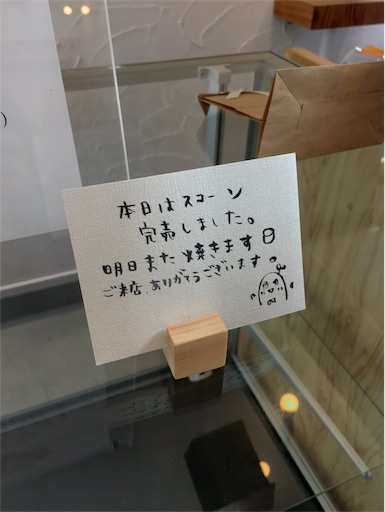 本日はスコーン
完売しました。
明日また焼きます日
ご来店、ありがとうございます。
)